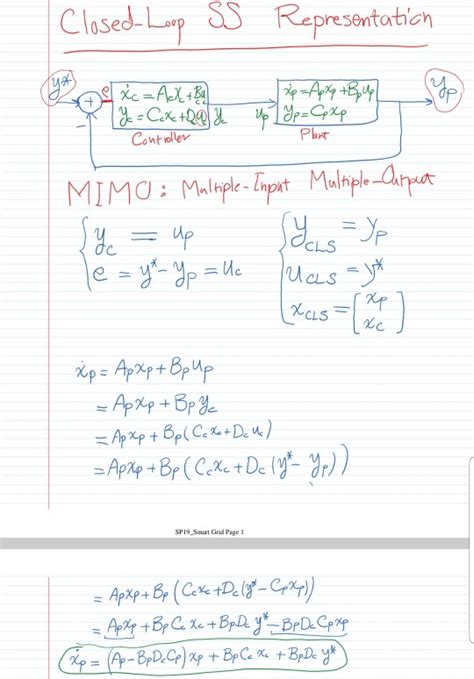 Closed-Loop SS Representation
y* + e ẋc = Acxc + Bcuc yc up ẋp = Apxp + Bpup yp
− yc = Ccxc + Dcuc yp = Cpxp
Controller Plant
MIMO: Multiple-Input Multiple-Output
yc = up
e = y* − yp = uc
yCLS = yp
uCLS = y*
xCLS = [xp
xc]
ẋp = Apxp + Bpup
= Apxp + Bpyc
= Apxp + Bp(Ccxc + Dcuc)
= Apxp + Bp(Ccxc + Dc(y* − yp))
SP19_Smart Grid Page 1
= Apxp + Bp(Ccxc + Dc(y* − Cpxp))
= Apxp + BpCcxc + BpDcy* − BpDcCpxp
ẋp = (Ap − BpDcCp)xp + BpCcxc + BpDcy*